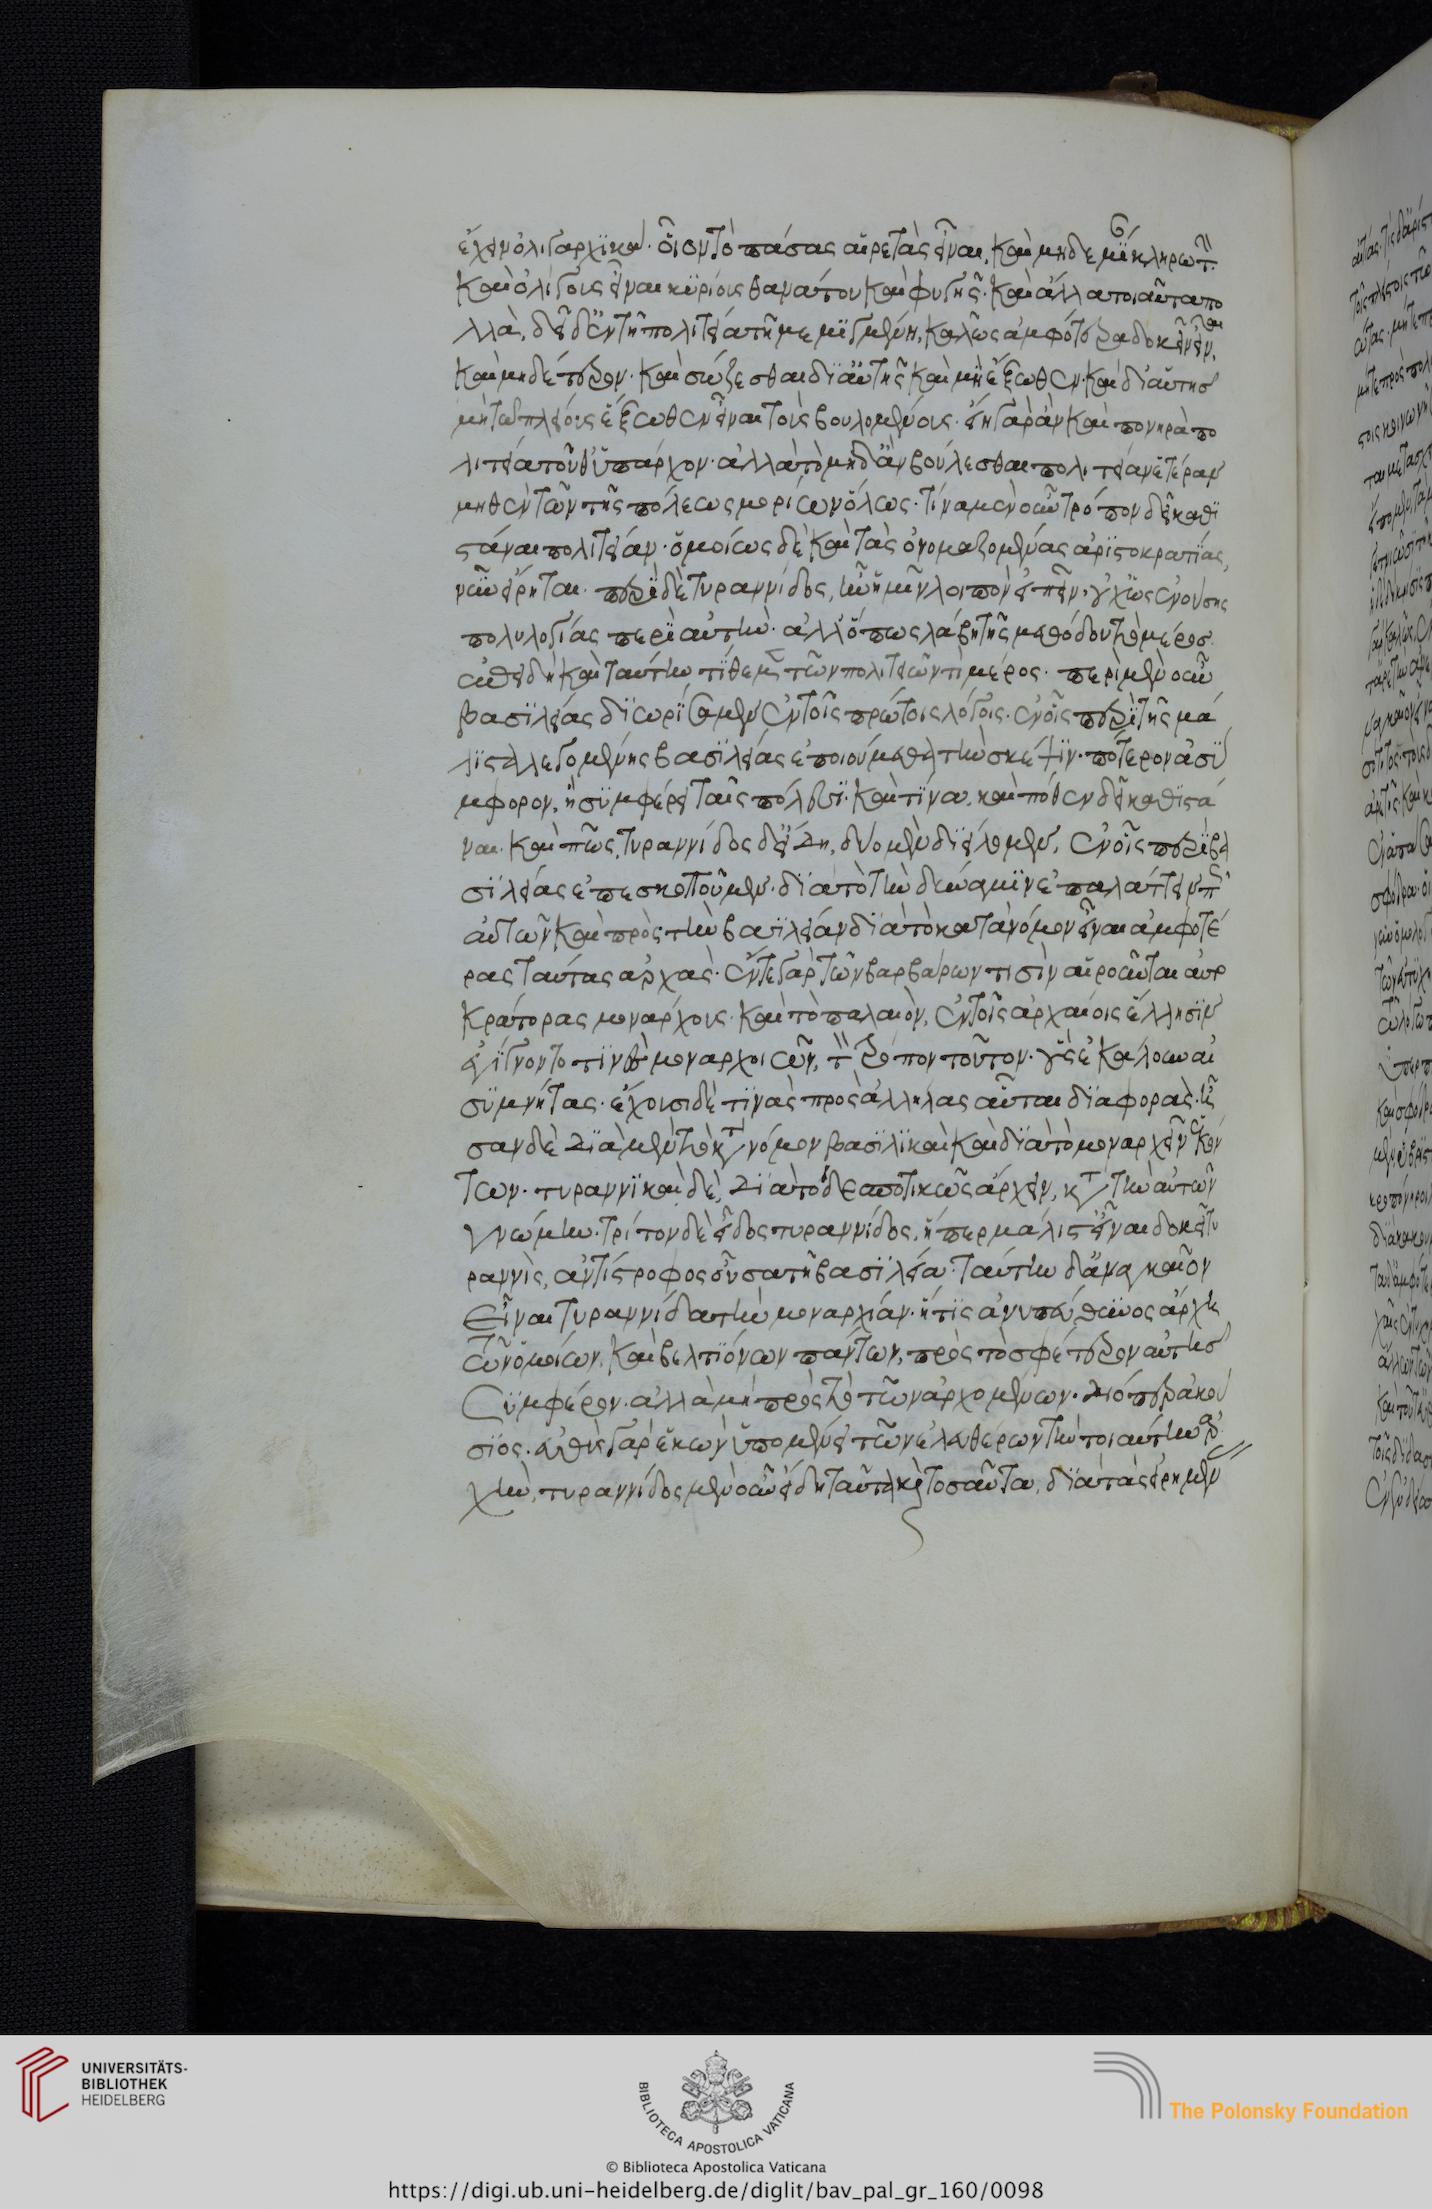 ἔχειν ὀλιγαρχικὰ. οἷον τὸ πάσας αἱρετὰς εἶναι, καὶ μηδεμίαν κληρωτὴν.
καὶ ὀλίγοις εἶναι κυρίοις θανάτου καὶ φυγῆς. καὶ ἄλλα τοιαῦτα πο
λλὰ, δεῖ δ' ἐν τῆ πολιτεία τῆ μεμιγμένη, καλῶς ἀμφότερα δοκεῖν εἶναι,
καὶ μηδέτερον. καὶ σώζεσθαι δι' αὑτῆς καὶ μὴ ἔξωθεν. καὶ δι' αὑτῆς
μὴ τῶ πλείους ἔξωθεν εἶναι τοὺς βουλομένους. εἴη γὰρ ἂν καὶ πονηρᾶ πο
λιτεία τοῦθ' ὑπάρχον. ἀλλὰ τὸ μηδ' ἂν βούλεσθαι πολιτείαν ἑτέραν
μηθὲν τῶν τῆς πόλεως μορίων ὅλως. τίνα μὲν οὖν τρόπον δεῖ καθι
στάναι πολιτείαν. ὁμοίως δὲ καὶ τὰς ὀνομαζομένας ἀριστοκρατίας,
νῦν εἴρηται. περὶ δὲ τυραννίδος, ἦν ἡμῖν λοιπὸν εἰπεῖν. οὐχ ὡς ἐνούσης
πολυλογίας περὶ αὐτὴν. ἀλλ' ὅπως λάβη τῆς μεθόδου τὸ μέρος.
ἐπειδὴ καὶ ταύτην τίθεμεν τῶν πολιτειῶν τὶ μέρος. περὶ μὲν οὖν
βασιλείας διωρίσαμεν ἐν τοῖς πρώτοις λόγοις. ἐν οἷς περὶ τῆς μά
λιστα λεγομένης βασιλείας ἐποιούμεθα τὴν σκέψιν. πότερον ἀσύ
μφορον, ἢ συμφέρει ταῖς πόλεσι. καὶ τίνα, καὶ πόθεν δεῖ καθιστά
ναι. καὶ πῶς, τυραννίδος δ' εἴδη, δύο μὲν διείλομεν, ἐν οἷς περὶ βα
σιλείας ἐπεσκοποῦμεν. διὰ τὸ τὴν δύναμιν ἐπαλάττειν πως
αὐτῶν καὶ πρὸς τὴν βασιλείαν διὰ τὸ κατὰ νόμον εἶναι ἀμφοτέ
ρας ταύτας ἀρχὰς. ἔν τε γὰρ τῶν βαρβάρων τισὶν αἱροῦνται αὐτο
κράτορας μονάρχους. καὶ τὸ παλαιὸν, ἐν τοῖς ἀρχαίοις ἕλλησιν
ἐγίγνοντο τινὲς μόναρχοι τὸν τρόπον τοῦτον. οὓς ἐκάλουν αἰ
συμνήτας. ἔχουσι δὲ τινὰς πρὸς ἀλλήλας αὗται διαφορὰς. ἦ
σαν δὲ διὰ μὲν τὸ κατὰ νόμον βασιλικαὶ καὶ διὰ τὸ μοναρχεῖν ἑκόν
των. τυραννικαὶ δὲ, διὰ τὸ δεσποτικῶς ἄρχειν, κατὰ τὴν αὑτῶν
γνώμην. τρίτον δὲ εἶδος τυραννίδος, ἥπερ μάλιστ' εἶναι δοκεῖ τυ
ραννὶς, ἀντίστροφος οὖσα τῆ βασιλεία. ταύτην δ' ἀναγκαῖον
εἶναι τυραννίδα τὴν μοναρχίαν. ἥτις ἀνυπεύθυνος ἄρχει
τῶν ὁμοίων, καὶ βελτιόνων πάντων, πρὸς τὸ σφέτερον αὐτῆς
συμφέρον. ἀλλὰ μὴ πρὸς τὸ τῶν ἀρχομένων. διόπερ ἀκού
σιος. οὐθεὶς γὰρ ἑκὼν ὑπομένει τῶν ἐλευθέρων τὴν τοιαύτην ἀρ
χὴν, τυραννίδος μὲν οὖν εἴδη ταῦτα καὶ τοσαῦτα, διὰ τὰς εἰρημέν
UNIVERSITÄTS-
BIBLIOTHEK
HEIDELBERG
BIBLIOTECA APOSTOLICA VATICANA
The Polonsky Foundation
© Biblioteca Apostolica Vaticana
https://digi.ub.uni-heidelberg.de/diglit/bav_pal_gr_160/0098